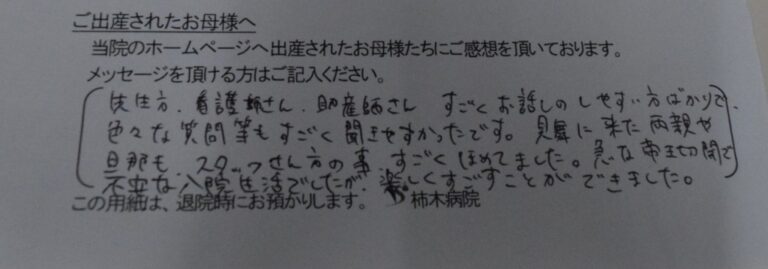 ご出産されたお母様へ
当院のホームページへ出産されたお母様たちにご感想を頂いております。
メッセージを頂ける方はご記入ください。
先生方、看護婦さん、助産師さん すごくお話しのしやすい方ばかりで、
色々な質問等もすごく聞きやすかったです。見舞に来た両親や
旦那も、スタッフさん方の事、すごくほめてました。急な帝王切開で
不安な入院生活でしたが、楽しくすごすことができました。
この用紙は、退院時にお預かりします。 柿木病院